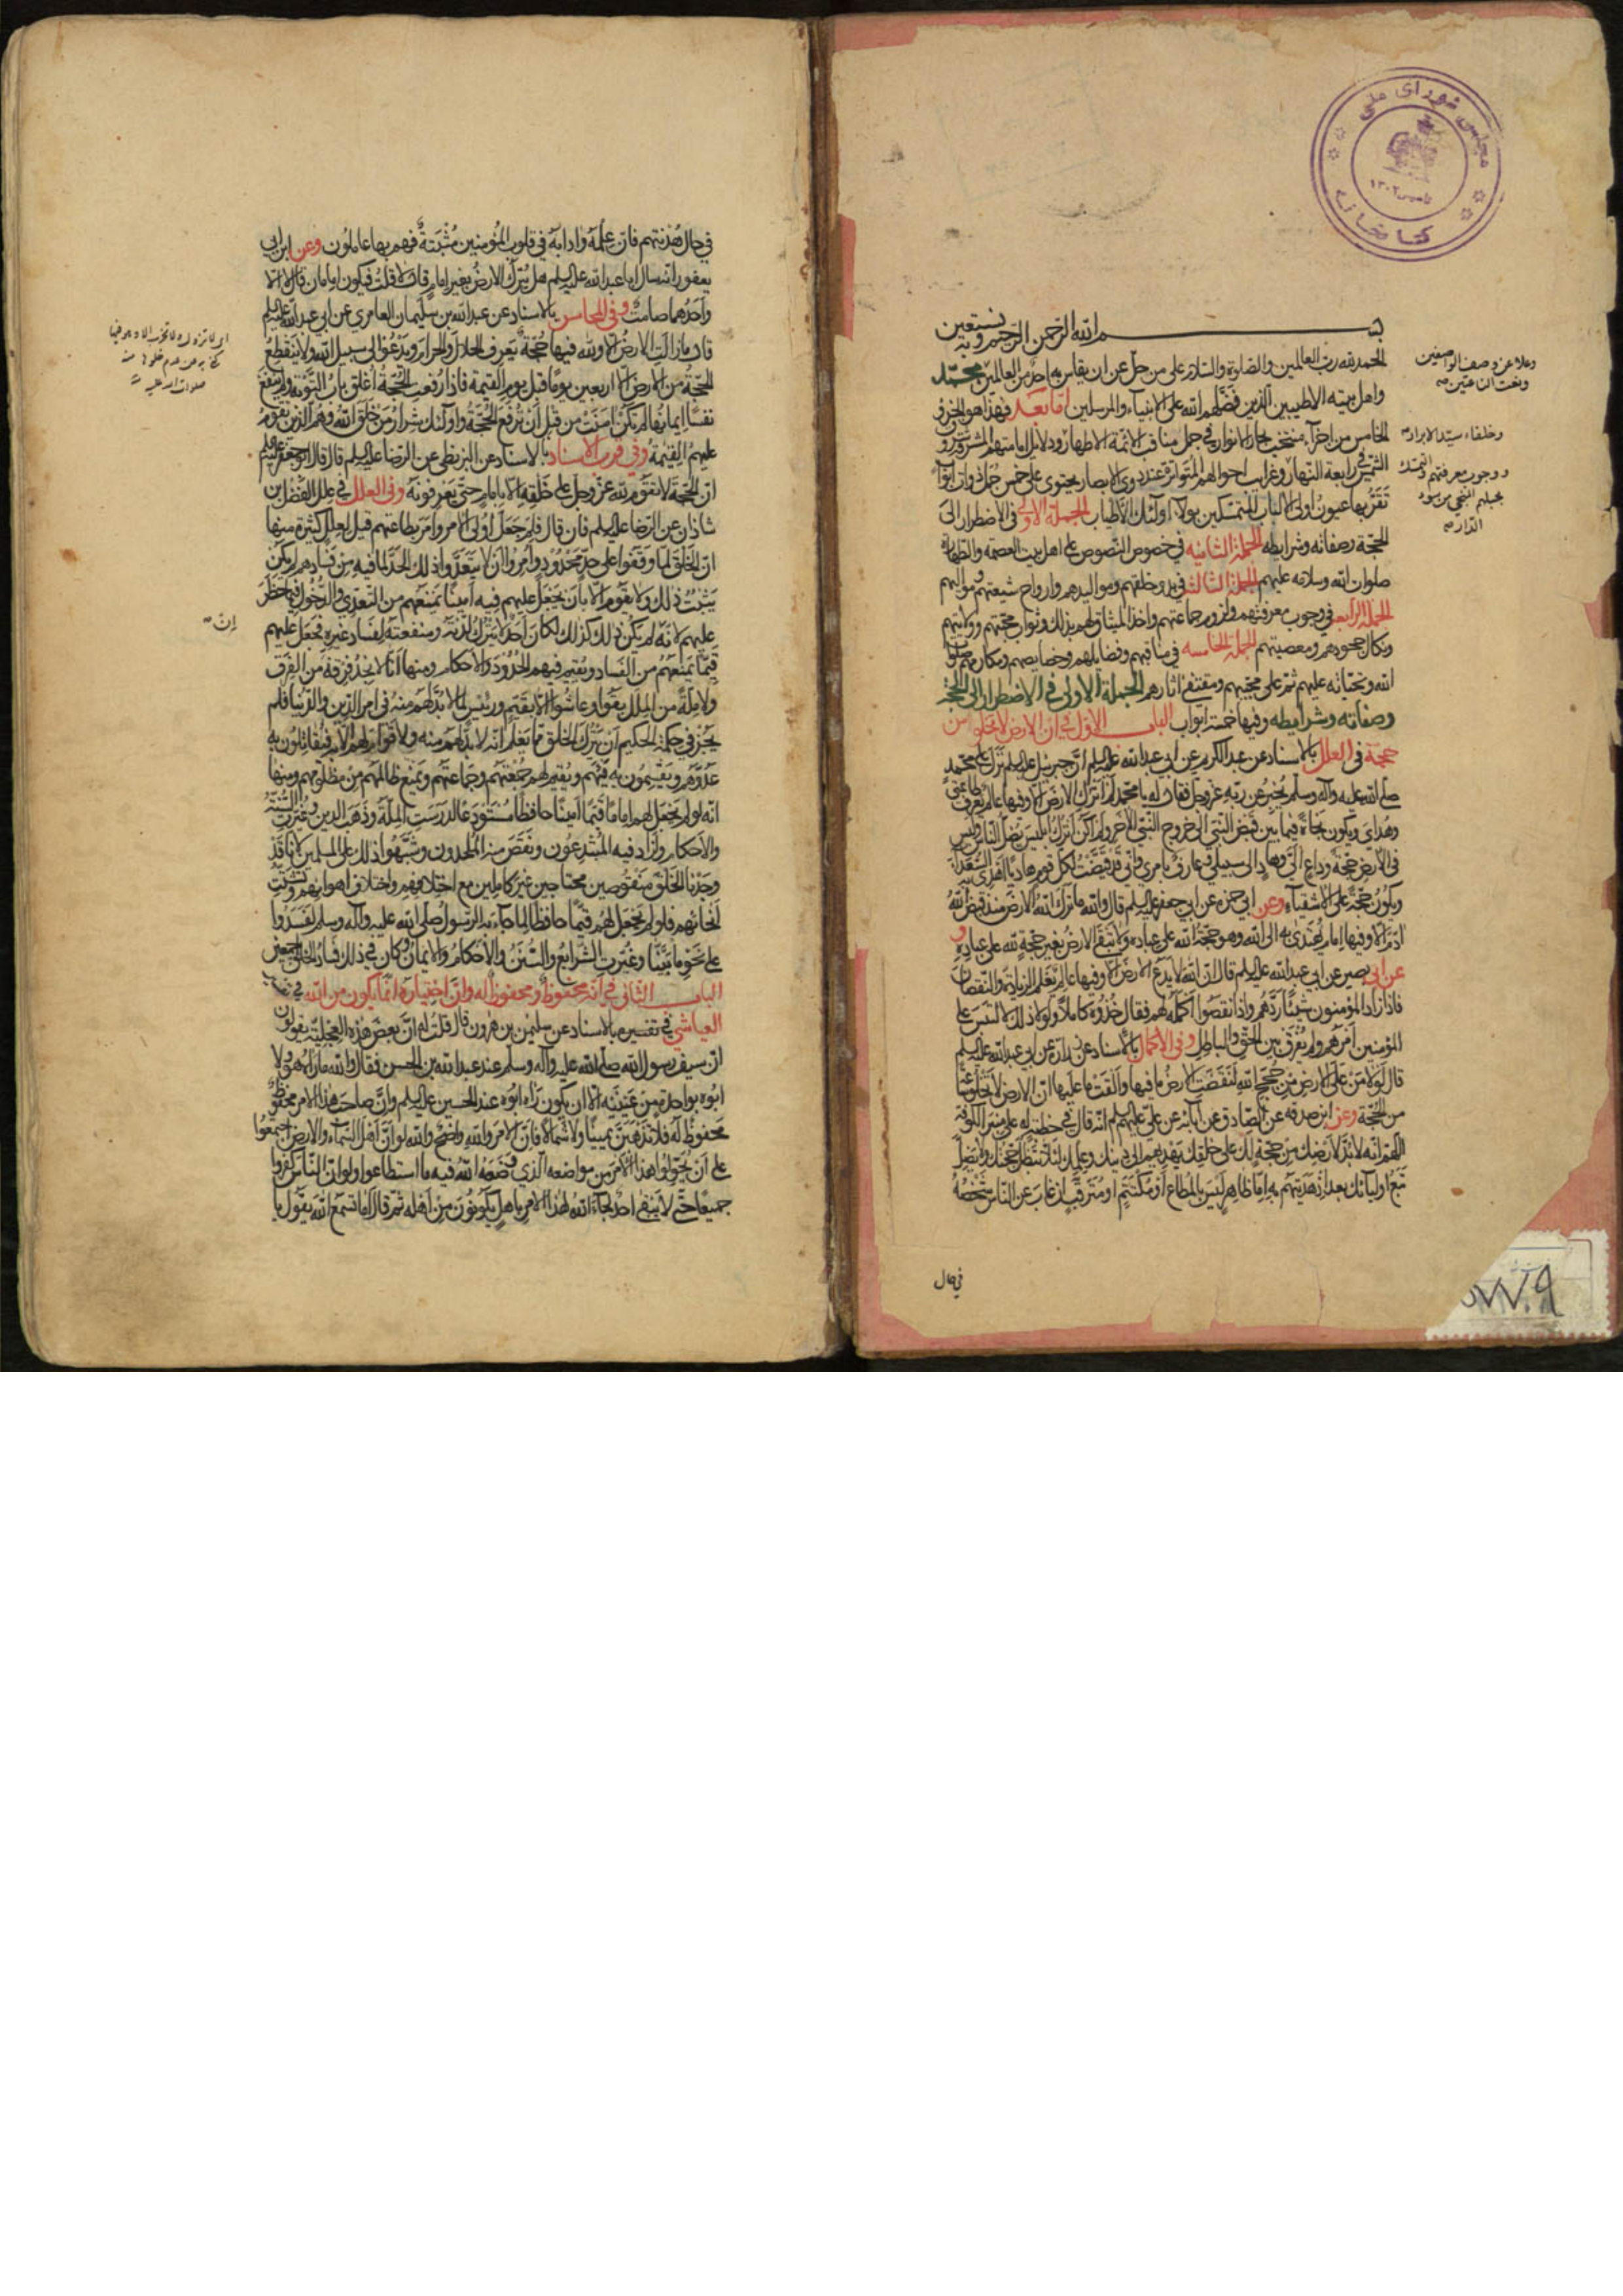 مجلس شورای ملی
تاسیس ۱۳۰۲
کتابخانه
بسم الله الرحمن الرحيم وبه نستعين
الحمد لله رب العالمين والصلوة والسلام على من جل عن ان يقاس به احد من العالمين محمد
وعلا عن وصف الواصفين
ونعت الناعتين صح
واهل بيته الاطيبين الذين فضلهم الله على الانبياء والمرسلين اما بعد فهذا هو الجزو
الخامس من اجزآء منتخب بحار الانوار في جمل مناقب الائمة الاطهار ودلايل امامتهم المشرقة
وخلفاء سيد الابرار صح
الشمس في رابعة النهار وغرايب احوالهم المتواترة عند ذوى الابصار يحتوى على خمس جمل
ووجوب معرفتهم والتمسك
بحبلهم المنجى من سوء
الدار صح
تقر بها عيون اولى الالباب المتمسكين بولاء اولئك الاطياب الجملة الاولى في الاضطرار الى
الحجة وصفاته وشرايطه الجملة الثانيه في خصوص النصوص على اهل بيت العصمة والطهارة
صلوات الله وسلامه عليهم الجملة الثالثة في بدو خلقتهم ومواليدهم وارواح شيعتهم ومواليهم
الجملة الرابعة في وجوب معرفتهم ولزوم جماعتهم واخذ الميثاق لهم بذلك وثواب محبتهم وولايتهم
ونكال جحودهم ومعصيتهم الجملة الخامسه في مناقبهم وفضايلهم وخصايصهم ومكارمهم صلوات
الله وتحياته عليهم ثم على محبيهم ومقتفى اثارهم الجملة الاولى في الاضطرار الى الحجة
وصفاته وشرايطه وفيها خمسة ابواب الباب الاول في ان الارض لا تخلو من
حجة في العلل بالاسناد عن عبد الكريم عن ابى عبد الله عليه السلم ان جبرئيل عليه السلم نزل على محمد
صلى الله عليه وآله وسلم يخبر عن ربه عز وجل فقال له يا محمد لم اترك الارض الا وفيها عالم يعرف طاعتى
وهداى ويكون نجاة فيما بين قبض النبى الى خروج النبى الاخر ولم اكن اترك ابليس يضل الناس وليس
في الارض حجة وداع الى وهاد الى سبيلى وعارف بامرى وانى قد قيضت لكل قوم هاديا اهدى به السعداء
ويكون حجة على الاشقياء وعن ابي حمزه عن ابي جعفر عليه السلم قال والله ما ترك الله الارض منذ قبض الله
ادم الا وفيها امام يهتدى به الى الله وهو حجة الله على عباده ولا تبقى الارض بغير حجة لله على عباده و
عن ابى بصير عن ابى عبد الله عليه السلم قال ان الله لا يدع الارض الا وفيها عالم يعلم الزيادة والنقصان
فاذا زاد المؤمنون شيئا ردهم واذا نقصوا اكمله لهم فقال خذوه كاملا ولولا ذلك لالتبس على
المؤمنين امرهم ولم يفرق بين الحق والباطل وفى الاكمال بالاسناد عن عن ابى عبد الله عليه السلم
قال لو لا من على الارض من حجج الله لنفضت الارض ما فيها والقت ما عليها ان الارض لا تخلو ساعة
من الحجة وعن ابن صدقه عن الصادق عن آبائه عن على عليهم السلم انه قال في خطبة له على منبر الكوفة
اللهم انه لا بد لارضك من حجة لك على خلقك يهديهم الى دينك ويعلمهم علمك لئلا تبطل حجتك ولا يضل
تبع اوليائك بعد اذ هديتهم به اما ظاهر ليس بالمطاع او مكتتم او مترقب ان غاب عن الناس شخصه
في حال
في حال هدنتهم فان علمه وادابه في قلوب المؤمنين مثبتة فهم بها عاملون وعن ابن ابى
يعفور انه سال ابا عبد الله عليه السلم هل تترك الارض بغير امام قال لا قلت فيكون امامان قال لا الا
واحدهما صامت وفى المحاسن بالاسناد عن عبد الله بن سليمان العامرى عن ابي عبد الله عليه السلم
قال ما زالت الارض الا ولله فيها حجة يعرف الحلال والحرام ويدعو الى سبيل الله ولا ينقطع
الحجة من الارض الا اربعين يوما قبل يوم القيمة فاذا رفعت الحجة اغلق باب التوبة ولم ينفع
نفسا ايمانها لم تكن امنت من قبل ان ترفع الحجة واولئك شرار من خلق الله وهم الذين تقوم
عليهم القيمة وفى قرب الاسناد بالاسناد عن البزنطى عن الرضا عليه السلم قال قال ابو جعفر عليه السلم
ان الحجة لا تقوم لله عز وجل على خلقه الا بامام حتى يعرفونه وفى العلل في علل الفضل بن
شاذان عن الرضا عليه السلم فان قال فلم جعل اولى الامر وامر بطاعتهم قيل لعلل كثيرة منها
ان الخلق لما وقفوا على حد محدود وامروا ان لا يتعدوا ذلك الحد لما فيه من فسادهم لم يكن
يثبت ذلك ولا يقوم الا بان يجعل عليهم فيه امينا يمنعهم من التعدى والدخول فيما حظر
عليهم لانه لو لم يكن ذلك كذلك لكان احد لا يترك لذته ومنفعته لفساد غيره فجعل عليهم
قيما يمنعهم من الفساد ويقيم فيهم الحدود والاحكام ومنها انا لا نجد فرقة من الفرق
ولا ملة من الملل بقوا وعاشوا الا بقيم ورئيس لما لا بد لهم منه في امر الدين والدنيا فلم
يجز في حكمة الحكيم ان يترك الخلق مما يعلم انه لا بد لهم منه ولا قوام لهم الا به فيقاتلون به
عدوهم ويقسمون به فيئهم ويقيم لهم جمعتهم وجماعتهم ويمنع ظالمهم من مظلومهم ومنها
انه لو لم يجعل لهم اماما قيما امينا حافظا مستودعا لدرست الملة وذهب الدين وغيرت السنة
والاحكام ولزاد فيه المبتدعون ونقص منه الملحدون وشبهوا ذلك على المسلمين لانا قد
وجدنا الخلق منقوصين محتاجين غير كاملين مع اختلافهم واختلاف اهوائهم وتشتت
انحائهم فلو لم يجعل لهم قيما حافظا لما جاء به الرسول صلى الله عليه وآله وسلم لفسدوا
على نحو ما بينا وغيرت الشرايع والسنن والاحكام والايمان وكان في ذلك فساد الخلق اجمعين
الباب الثانى في انه محفوظ ومحفوظ له وان اختياره انما يكون من الله
العياشي في تفسيره بالاسناد عن سليمن بن هرون قال قلت له ان بعض هذه العجلية يقولون
ان سيف رسول الله صلى الله عليه وآله وسلم عند عبد الله بن الحسن فقال والله ما رآه هو ولا
ابوه بواحدة من عينيه الا ان يكون رآه ابوه عند الحسين عليه السلم وان صاحب هذا الامر محفوظ
محفوظ له فلا تذهبن يمينا ولا شمالا فان الامر والله واضح والله لو ان اهل السماء والارض اجتمعوا
على ان يحولوا هذا الامر من مواضعه الذي وضعه الله فيه ما استطاعوا ولو ان الناس كفروا
جميعا حتى لا يبقى احد لجاء الله لهذا الامر باهل يكونون من اهله ثم قال اما تسمع الله يقول يا